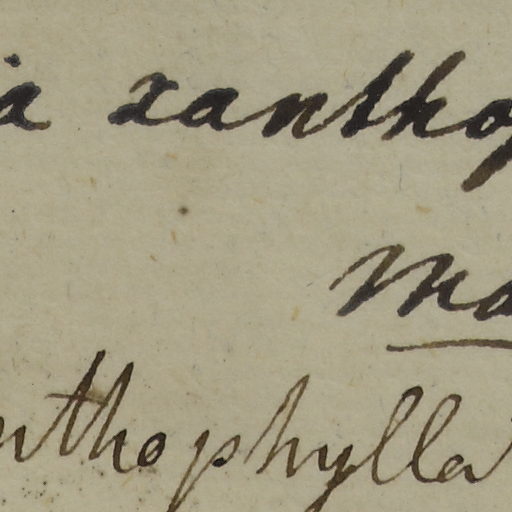 ia xanthop
Ma
nthophylla